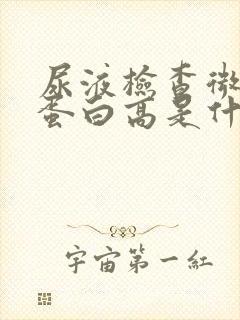 尿液檢查微
蛋白高是什
宇宙第一紅